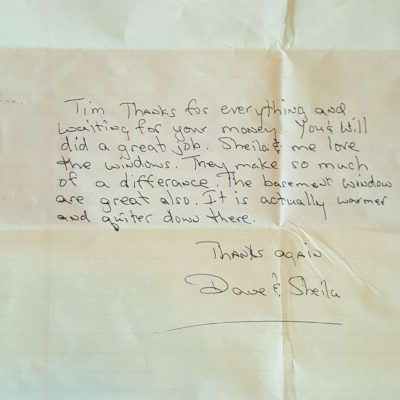 Tim Thanks for everything and
waiting for your money. You & Will
did a great job. Sheila & me love
the windows. They make so much
of a differance. The basement window
are great also. It is actually warmer
and quiter down there.
Thanks again
Dave & Sheila